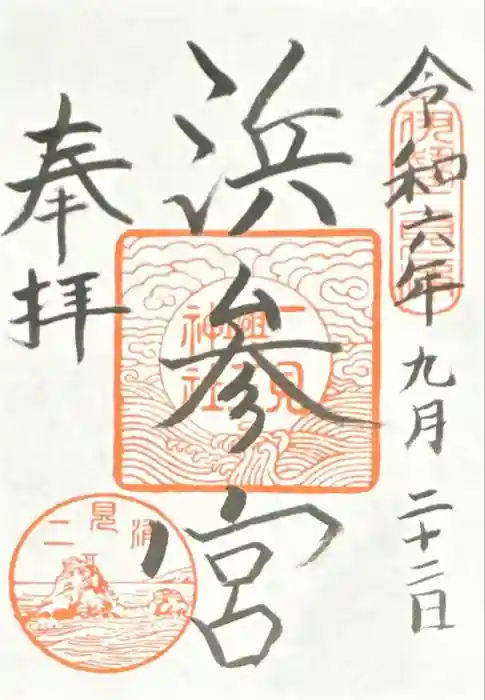 令和六年九月二十二日
浜参宮
奉拝
二見
興玉
神社
二見浦